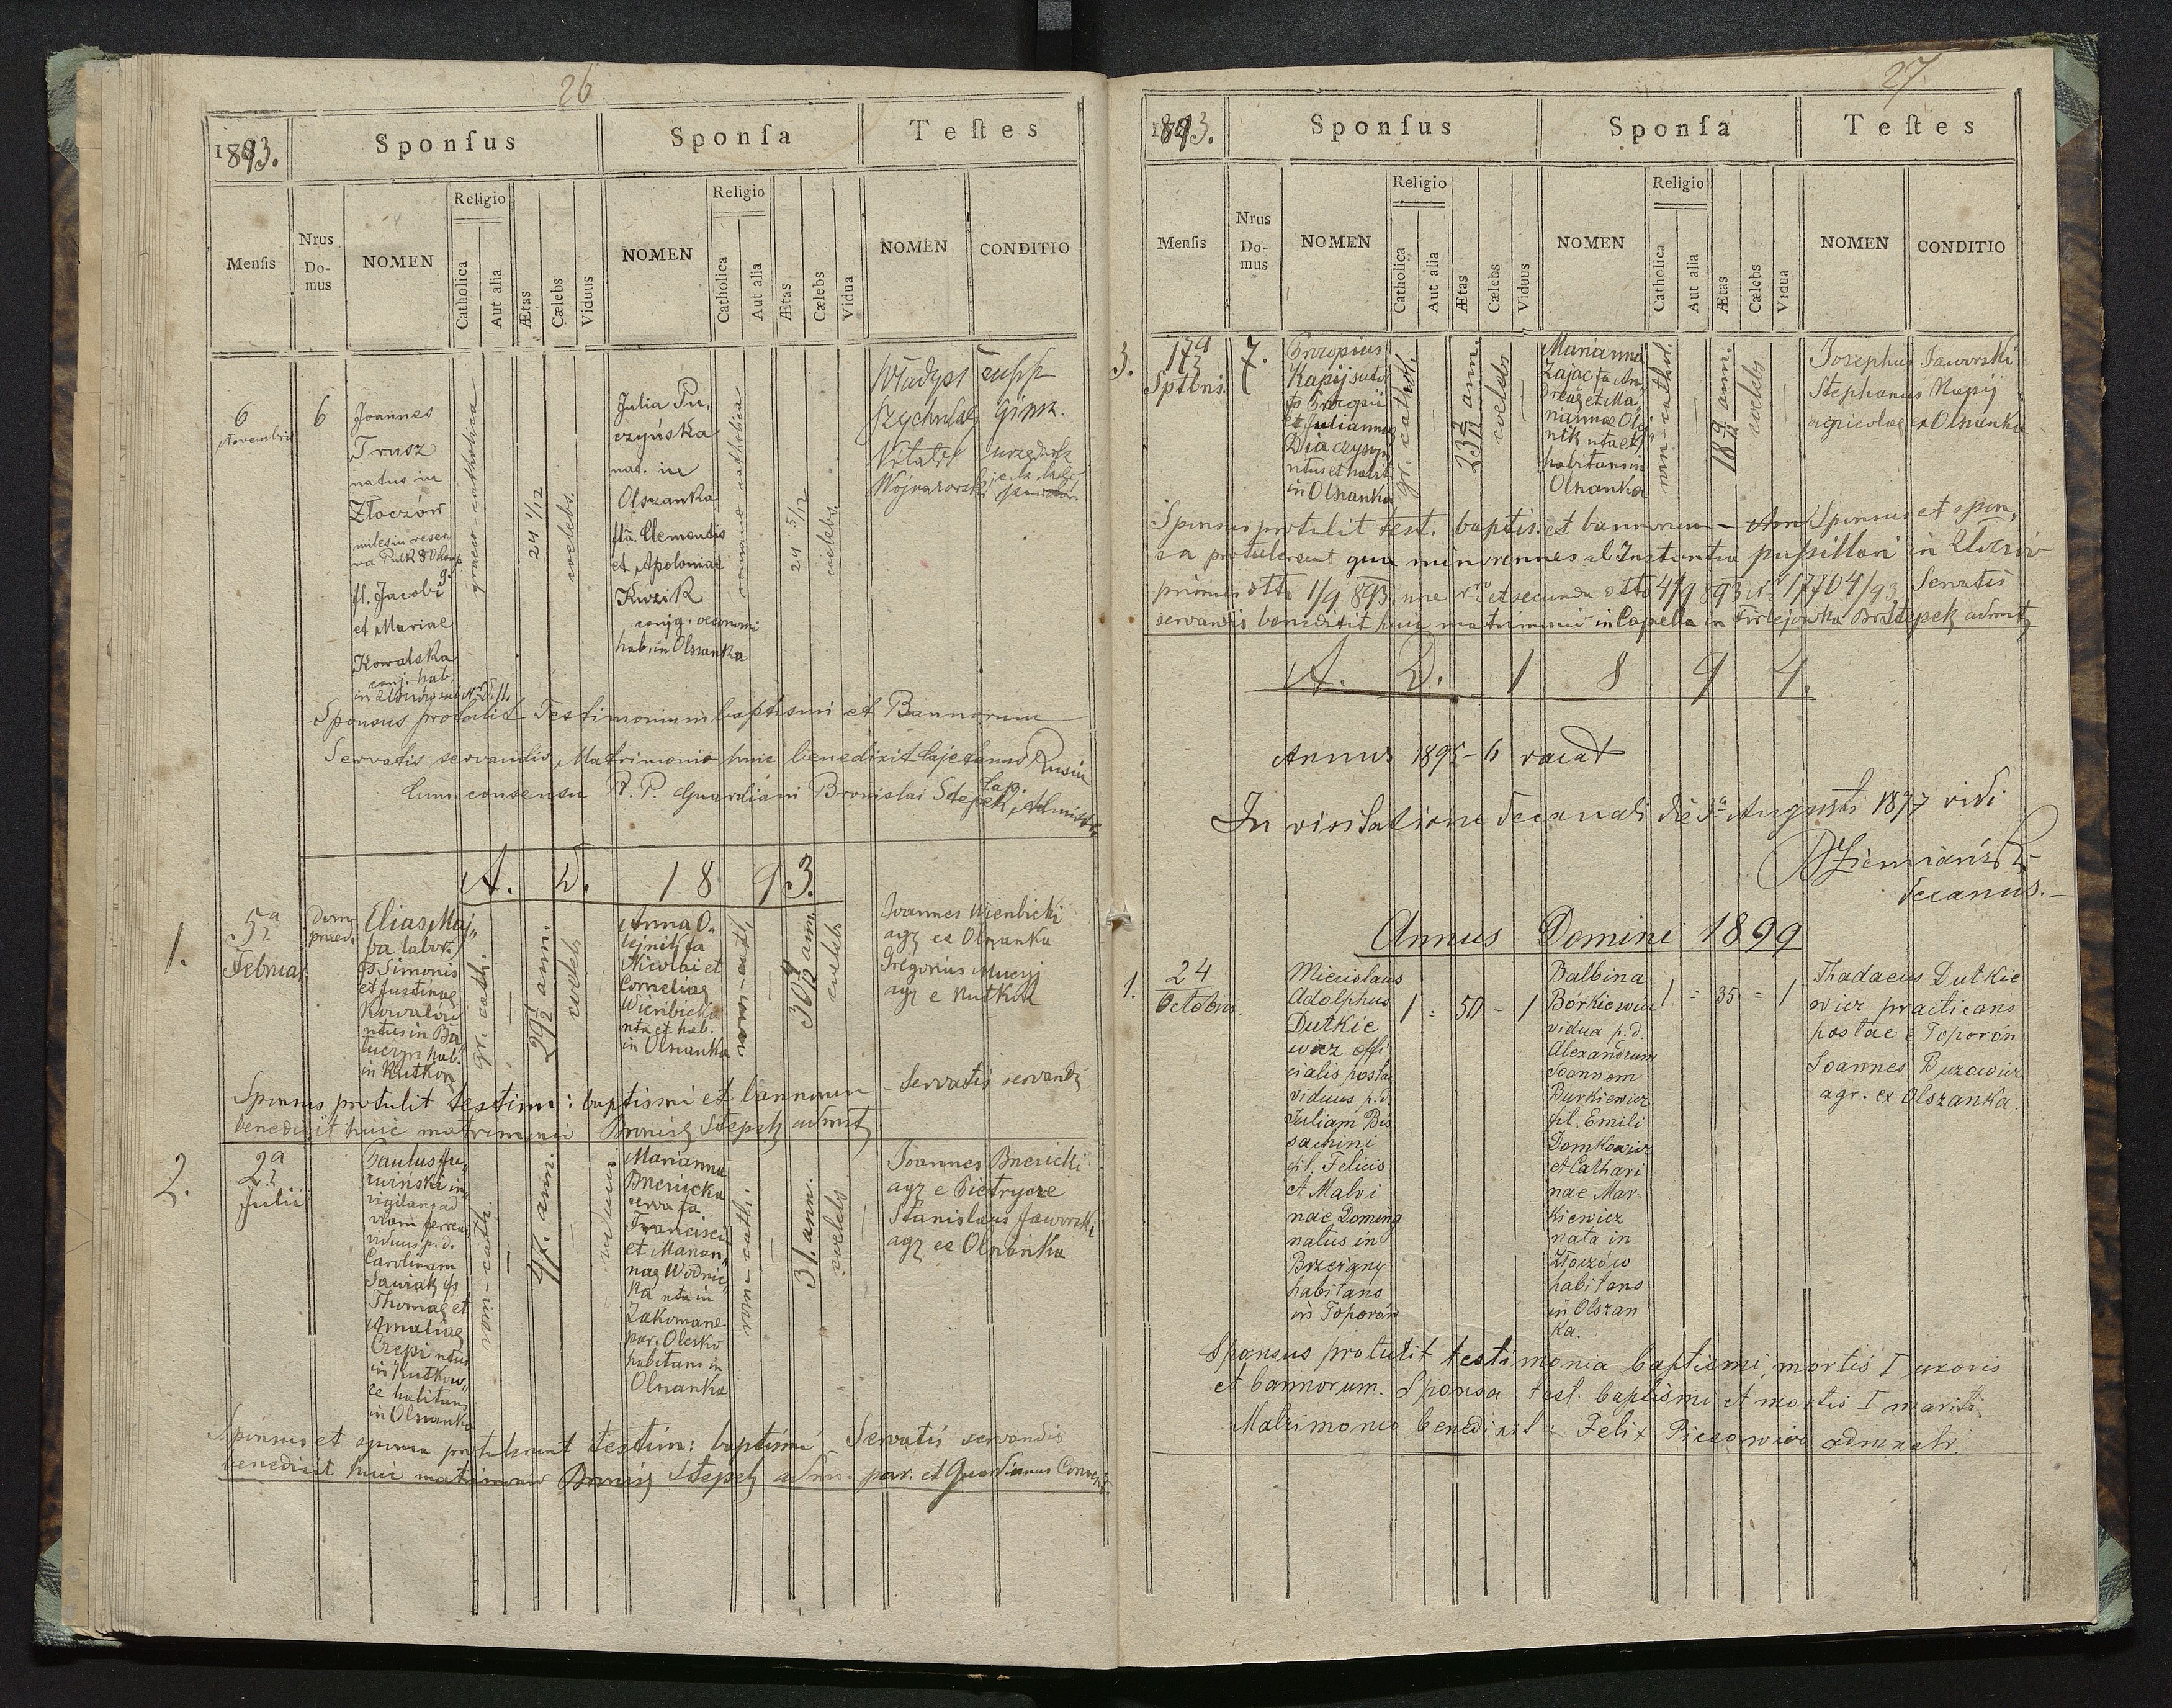 26
1893.
Sponſus
Sponſa
Teſtes
Menſis
Nrus
Do-
mus
NOMEN
Religio
Catholica
Aut alia
Ætas
Cælebs
Viduus
NOMEN
Religio
Catholica
Aut alia
Ætas
Cælebs
Vidua
NOMEN
CONDITIO
6
Novembris
6
Joannes
Trusz
natus in
Złoczów
miles in reser
va
fl. Jacobi
et Mariae
Kowalska
conj. hab.
graeco catholica
24 1/12
coelebs.
Julia Pu,
czyńska
nat. in
Olszanka
flã. Clementis
et Apoloniae
Kuzik
conjg. oeconomi
hab. in Olszanka
romano catholica
24 5/12
coelebs
Gimn.
Sponsus protulit Testimonium baptismi et Bannorum
Servatis servandis, Matrimonio huic benedixit Cajetanus Rusin
Cum consensu R. P. Guardiani Bronislai Stepek, Administr
A. D. 1893.
1.
5a
2
Februar
Dom
praed.
Elias Maj,
ba labor.
fs Simonis
et Justinae
Kowalow
ntus in Ba
tuczyn hab.
in Rutkow
gr. cath.
ann.
coelebs
Anna O,
lejnik fa
Nicolai et
Corneliae
Wienbicki
nta et hab.
in Olszanka
rom-cath.
ann.
coelebs
Joannes Wienbicki
agr ex Olszanka
Gregorius
agr e Rutkow
Sponsus protulit testim: baptismi et bannorum - Servatis servandis
benedixit huic matrimonio Bronisł Stepek admt
2.
2a
7
Julii
Paulus
vigilans ad
viam ferream
viduus p. d.
Carolinam
Sawiak fs
Thomae et
Amaliae
Czepi ntus
in Rutkow,
ce habitans
in Olszanka
rom-cath.
47. ann.
viduus
Marianna
Bnericka
serva fa.
Francisci
et Marian,
nae Wodnic
ka nta in
Zakomane
par. Olesko
habitans in
Olszanka
rom-cath.
31. ann.
coelebs
Joannes Bnericki
agr e Pietrycze
Stanislaus Jaworski
agr ex Olszanka
Sponsus et sponsa protulerunt testim: baptismi - Servatis servandis
benedixit huic matrimonio Bronisł Stepek adm. par. et Guardianus Convent
27
1893.
Sponſus
Sponſa
Teſtes
Menſis
Nrus
Do-
mus
NOMEN
Religio
Catholica
Aut alia
Ætas
Cælebs
Viduus
NOMEN
Religio
Catholica
Aut alia
Ætas
Cælebs
Vidua
NOMEN
CONDITIO
3.
17a
Sptbris
7.
Procopius
Kapij sutor
fs Procopii
et Juliannae
Diaczyszyn
ntus et habit
in Olszanka
gr. cathol.
ann.
coelebs
Marianna
Zając fa An,
dreae et Ma,
riannae Olej
nik nta et
habitans in
Olszanka
rom-cathol.
ann.
coelebs
Josephus Jaworski
Stephanus Kapij
agricolae ex Olszanka
Sponsus protulit test. baptis: et bannorum - Sponsus et spon,
sa protulerunt qua minorennes ab Instantia pupillari in Złoczów
primus dtto 1/9 893 nre et secunda dtto 4/9 893 Servatis
servandis benedixit huic matrimonio in Capella in Firlejówka Br Stepek admt
A. D. 1894.
Annus 1895-6 vacat
In visitatione decanali die Augusti 1897 vidi
Ziemiański
decanus.
Annus Domini 1899
1.
24
Octobris
Miecislaus
Adolphus
Dutkie
wicz offi
cialis postae
viduus p. d.
Juliam Bis
sachini
fil. Felicis
et Malvi
nae Doming
natus in
Brzeżany
habitans
in Toporów
1 = 50 - 1
Balbina
Borkiewicz
vidua p. d.
Alexandrum
Joannem
Burkiewicz
fil. Emili
Domkowicz
et Cathari
nae Mar-
kiewicz
nata in
Złoczów
habitans
in Olszan
ka.
1 = 35 = 1
Thadaeus Dutkie
wicz practicans
postae e Toporów
Joannes Buzowicz
agr. ex Olszanka.
Sponsus protulit testimonia baptismi, mortis I uxoris
et bannorum. Sponsa test. baptismi et mortis I mariti.
Matrimonio benedixit: Felix Pieczowicz admnstr.